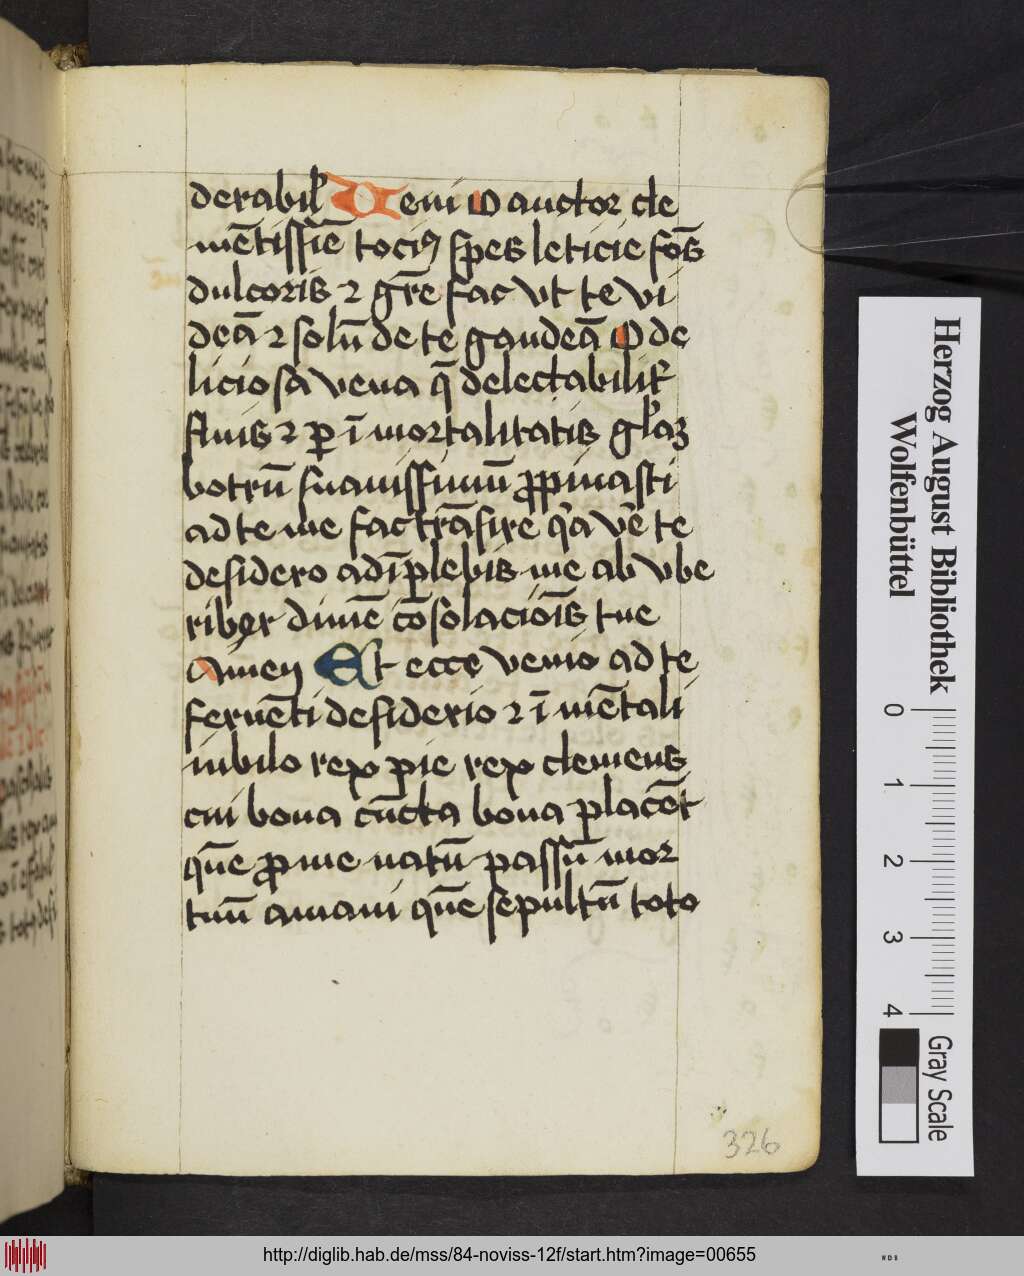 derabil̕ Ueni O auctor cle
mētissīe tociꝰ spes leticie fōs
dulcoris ⁊ gr̄e fac vt te vi
deā ⁊ solū de te gaudeā O de
liciosa vena q̄ delectabilit̕
fluis ⁊ ꝑ ī mortalitatis gl̕aꝫ
botrū suauissimū ꝓpinasti
ad te me fac trāsire q̕a v̄e te
desidero adīplebis me ab vbe
ribꝫ diuīe cōsolaciōīs tue
Amen Et ecce venio ad te
feruēti desiderio ⁊ ī mētali
iubilo rex pie rex clemens
cui bona cūcta bona placēt
quē ꝓ me natū passū mor
tuū amaui quē sepultū toto
326
Herzog August Bibliothek
Wolfenbüttel
0 1 2 3 4
Gray Scale
http://diglib.hab.de/mss/84-noviss-12f/start.htm?image=00655